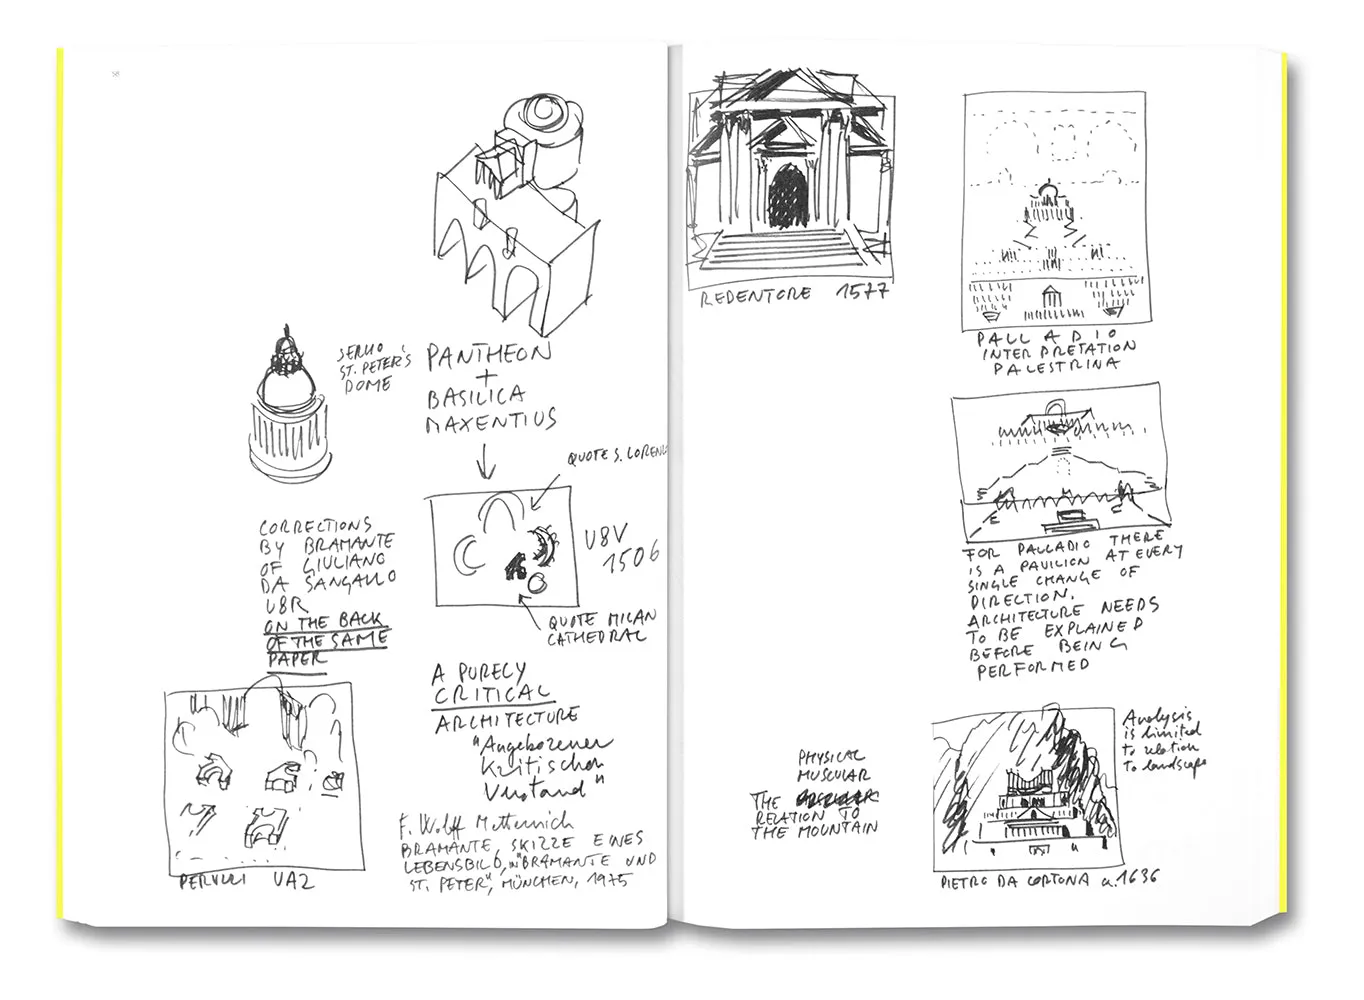 SERLIO
ST. PETER'S
DOME
PANTHEON
+
BASILICA
MAXENTIUS
QUOTE S. LORENZ
U8V
1506
QUOTE MILAN
CATHEDRAL
CORRECTIONS
BY BRAMANTE
OF GIULIANO
DA SANGALLO
U8R
ON THE BACK
OF THE SAME
PAPER
A PURELY
CRITICAL
ARCHITECTURE
"Angeborener
Kritischer
Verstand"
F. Wolff Metternich
BRAMANTE, SKIZZE EINES
LEBENSBILD, in "BRAMANTE UND
ST. PETER", MÜNCHEN, 1975
PERUZZI UA2
REDENTORE 1577
PALLADIO
INTERPRETATION
PALESTRINA
FOR PALLADIO THERE
IS A PAVILION AT EVERY
SINGLE CHANGE OF
DIRECTION.
ARCHITECTURE NEEDS
TO BE EXPLAINED
BEFORE BEING
PERFORMED
PHYSICAL
MUSCULAR
THE
RELATION TO
THE MOUNTAIN
Analysis
is limited
to relation
to landscape
PIETRO DA CORTONA a. 1636